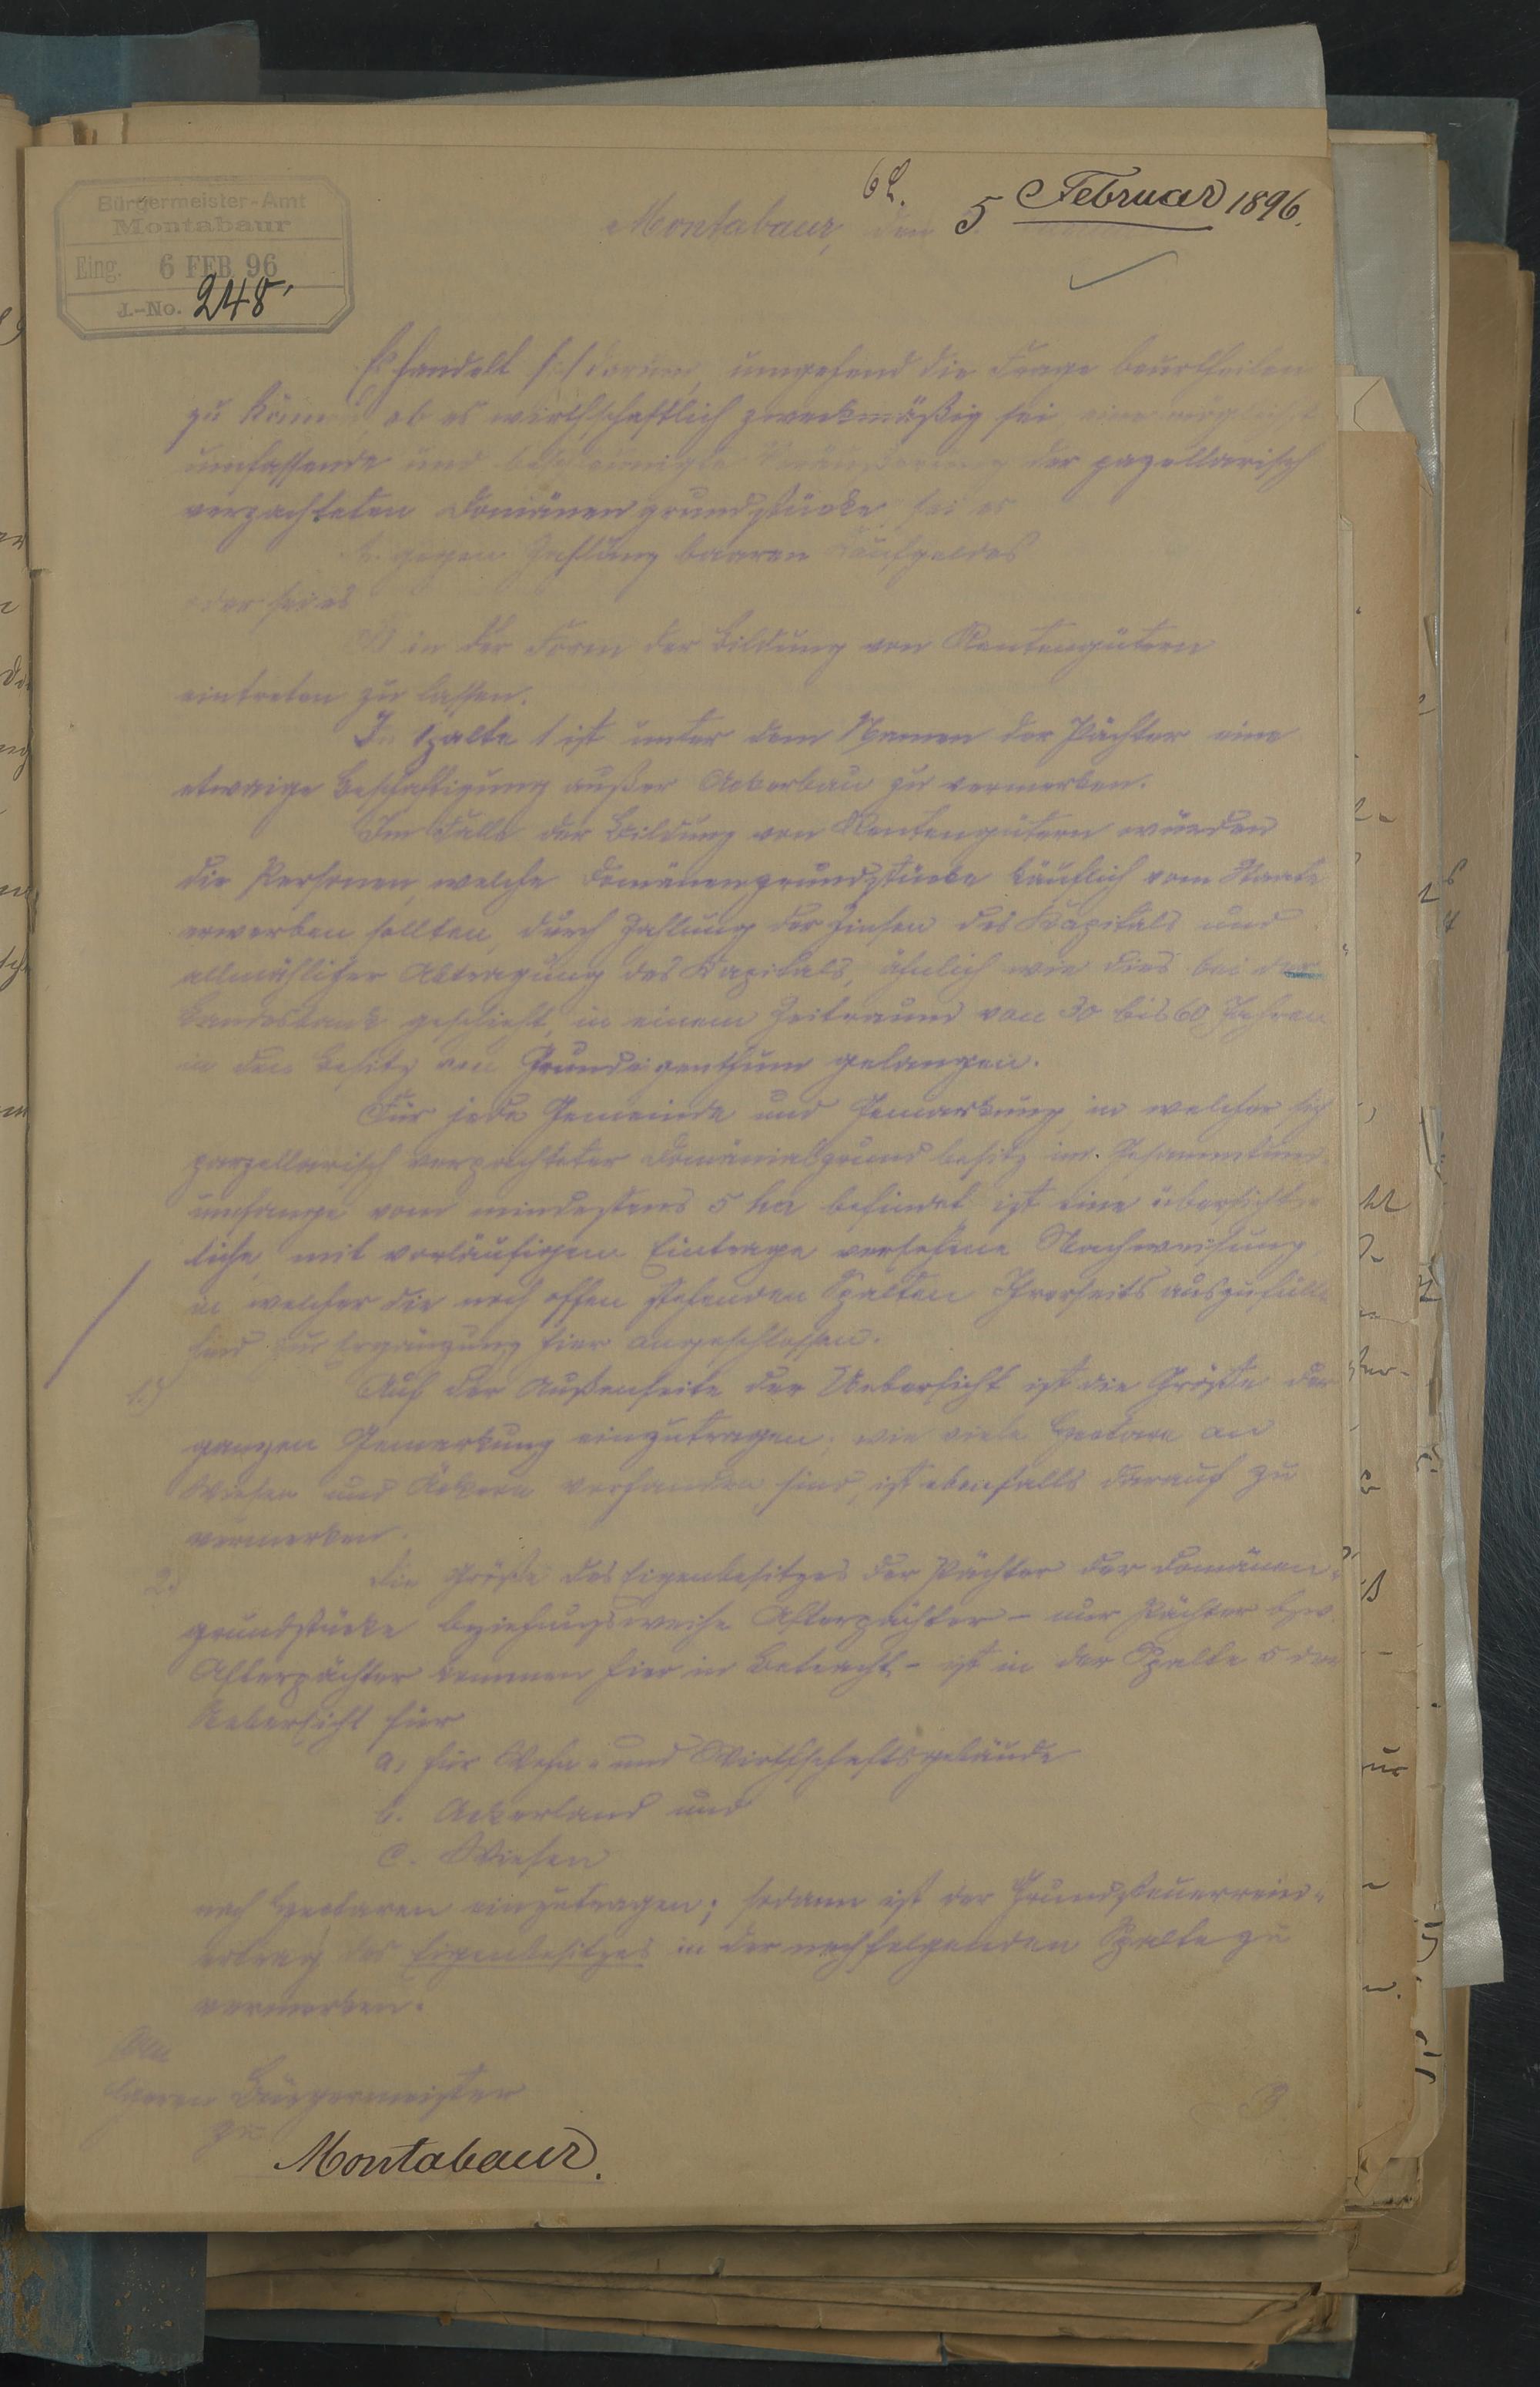 Bürgermeister-Amt
Montabaur
Eing. 6 FEB. 96
J.-No. 248
Montabaur, den 5 Februar 1896.
Es handelt sich darum, umgehend die Frage beurtheilen
zu können ob es wirthschaftlich zweckmäßig sei, eine möglichst
umfassende und beschleunigte Veräußerung der pazellarisch
verpachteten Domänengrundstücke, sei es
gegen Zahlung baaren Kaufgeldes
oder sei es
in der Form der Bildung von Rentengütern
eintreten zu lassen.
In Spalte 1 ist unter dem Namen der Pächter eine
etwaige Beschäftigung außer Ackerbau zu vermerken.
Im Falle der Bildung von Rentengütern würden
die Personen, welche Domänengrundstücke käuflich vom Staate
erwerben sollten, durch Zahlung der Zinsen des Kapitals und
allmähliger Abtragung des Kapitals, ähnlich wie dies bei der
Landesbank geschieht, in einem Zeitraum von 30 bis 60 Jahren
in den Besitz von Grundeigenthum gelangen.
Für jede Gemeinde und Gemarkung, in welcher sich
parzellarisch verpachteter Domänialgrundbesitz im Gesammt
umfange von mindestens 5 ha befindet ist eine übersicht-
liche, mit vorläufigem Eintrage versehene Nachweisung
in welcher die noch offen stehenden Spalten Ihrerseits auszufüllen
sind zur Ergänzung hier angeschlossen.
1.) Auf der Außenseite der Uebersicht ist die Größe der
ganzen Gemarkung einzutragen; wie viele Hectare an
Wiesen und Äckern vorhanden sind, ist ebenfalls darauf zu
vermerken.
2.) Die Größe des Eigenbesitzes der Pächter der Domänen-
grundstücke beziehungsweise Afterpächter - nur Pächter bzw.
Afterpächter kommen hier in Betracht - ist in der Spalte 5 der
Uebersicht hier
a, für Wohn- und Wirthschaftsgebäude
b. Ackerland und
c. Wiesen
nach Hectaren einzutragen; sodann ist der Grundsteuerrein-
ertrag des Eigenbesitzes in der nachfolgenden Spalte zu
vermerken.
An
Herrn Bürgermeister
zu
Montabaur.